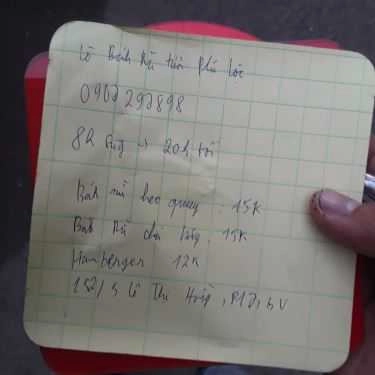 Lò Bánh Mì tiến Phú Lộc
0962292898
8h sáng → 20h tối
Bánh mì heo quay : 15K
Bánh Mì chả lụa : 15K
Hamberger 12K
152/5 Lê Thị Hồng, P17, GV